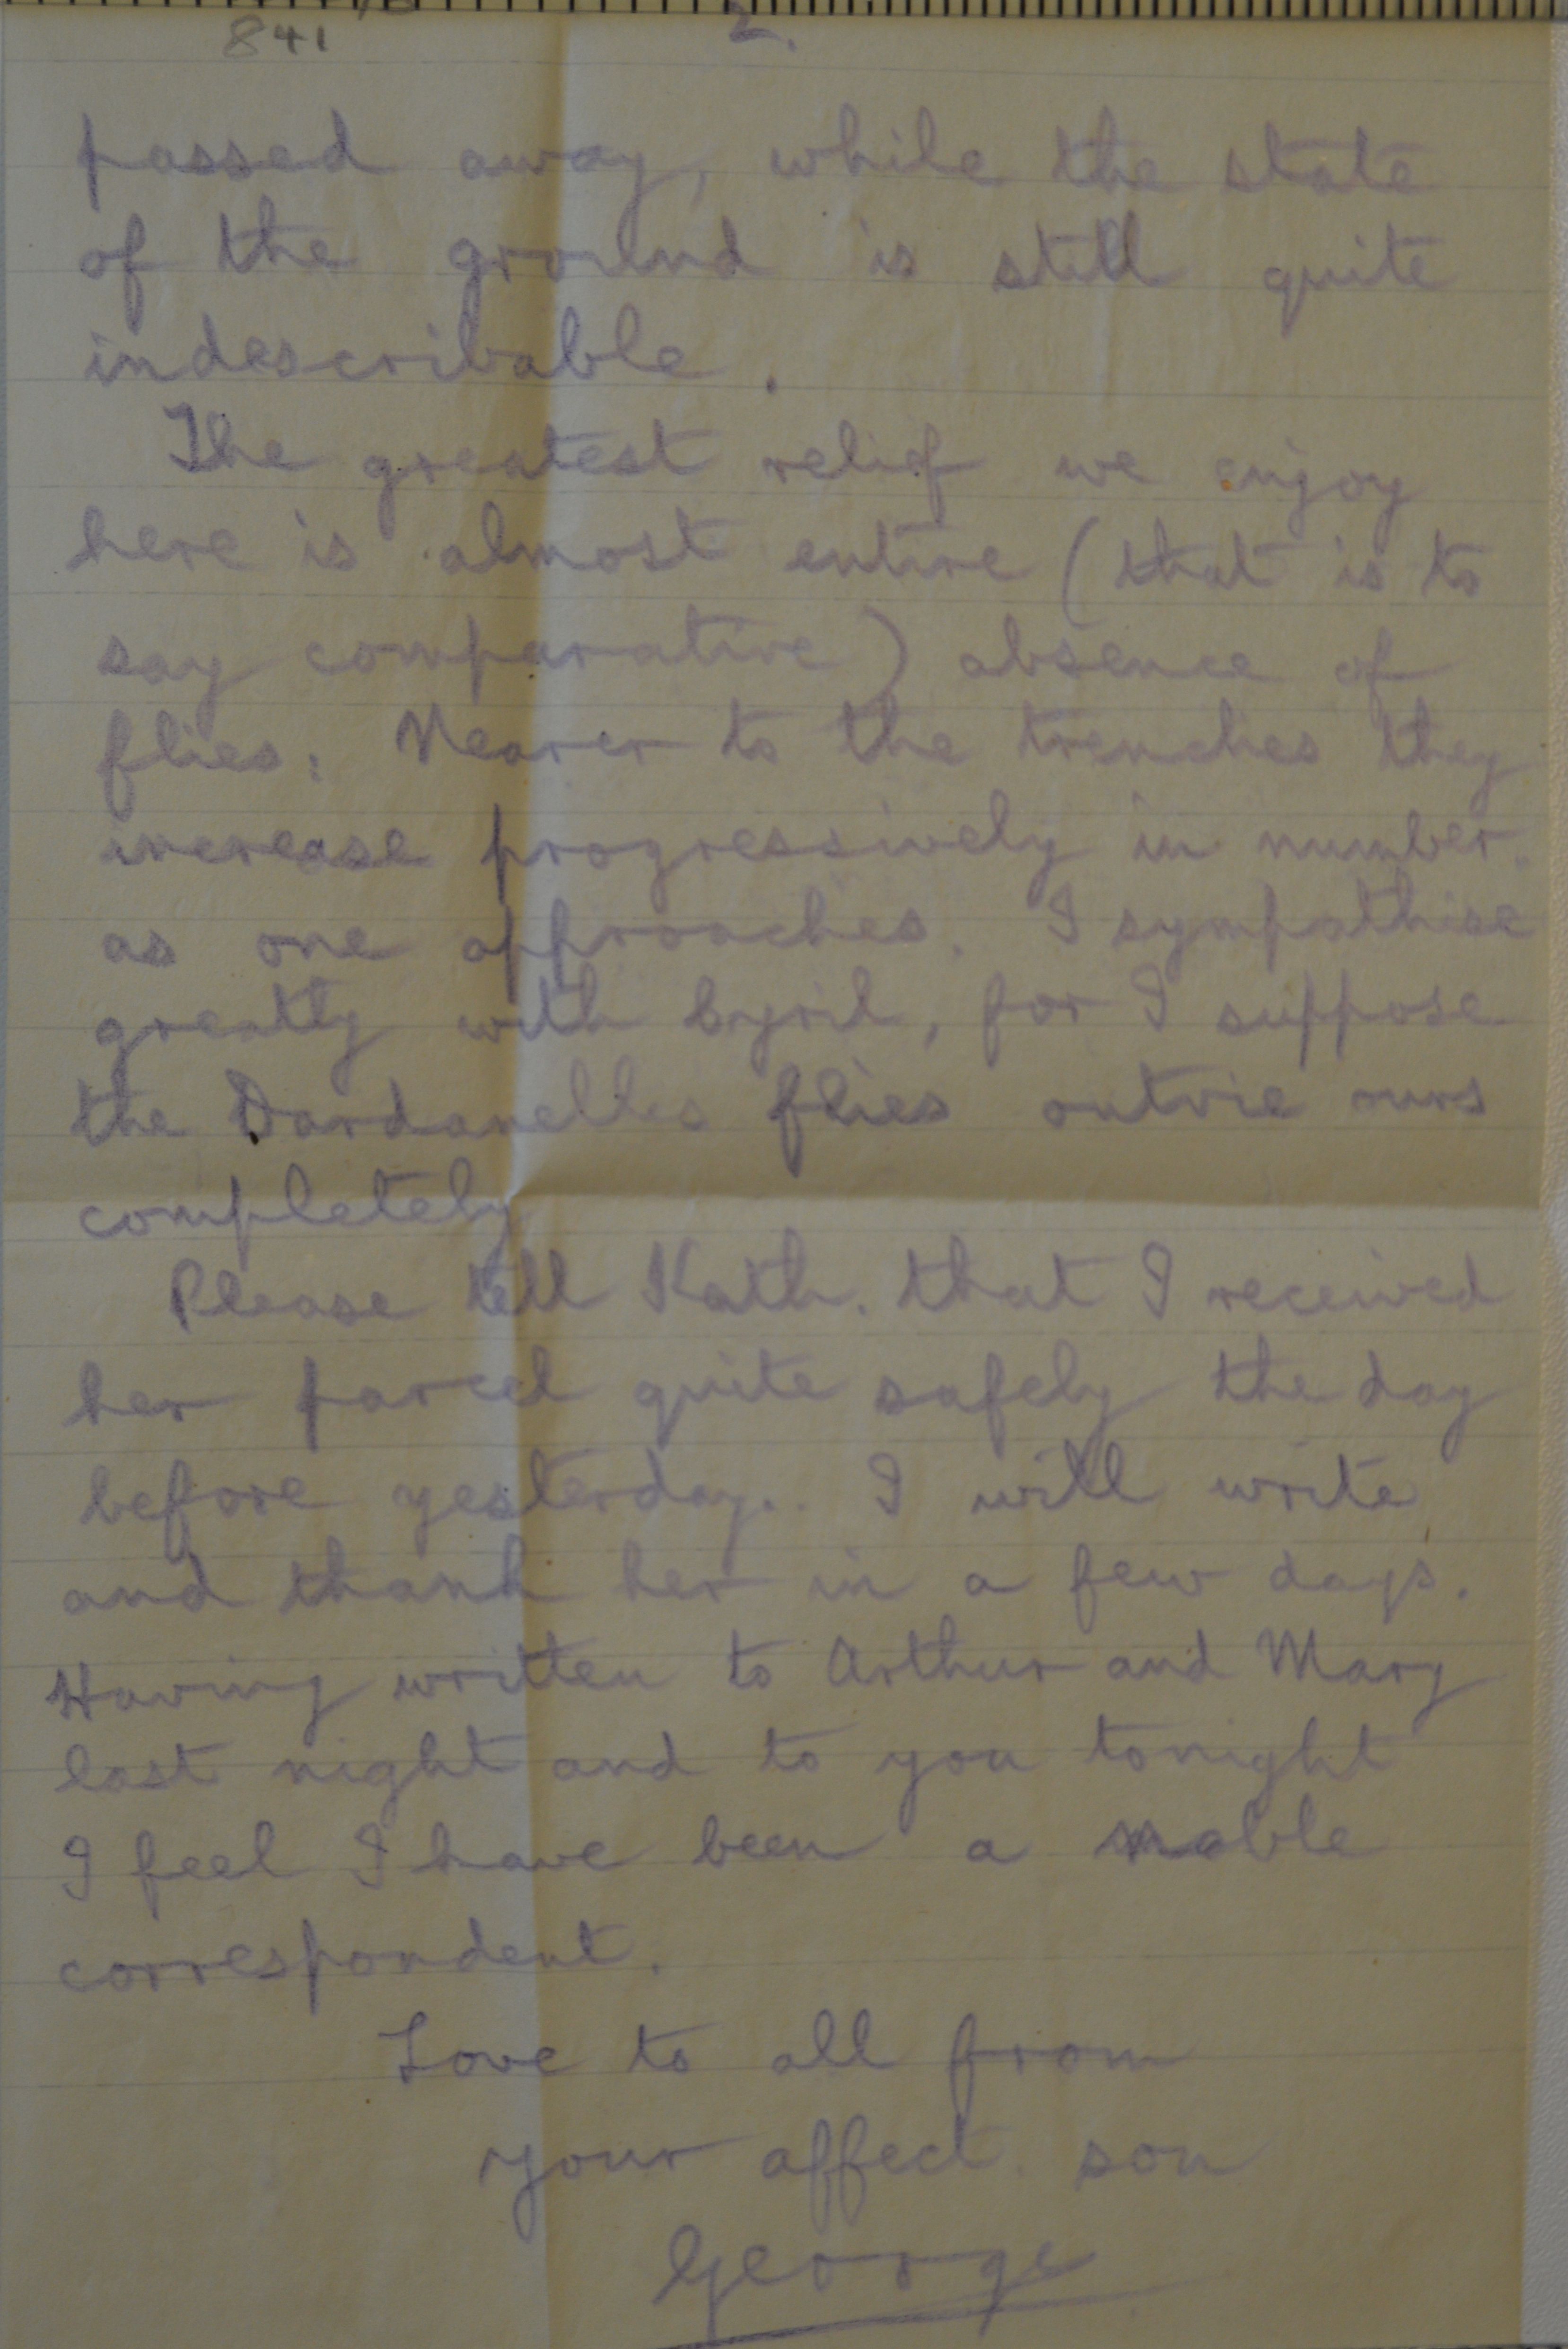 841
2.
passed away, while the state
of the ground is still quite
indescribable.
The greatest relief we enjoy
here is almost entire (that is to
say comparative) absence of
flies: Nearer to the trenches they
increase progressively in number.
as one approaches. I sympathise
greatly with Cyril, for I suppose
the Dardanelles flies outvie ours
completely
Please tell Kath. that I received
her parcel quite safely the day
before yesterday.. I will write
and thank her in a few days.
Having written to Arthur and Mary
last night and to you tonight
I feel I have been a noble
correspondent.
Love to all from
your affect. son
George